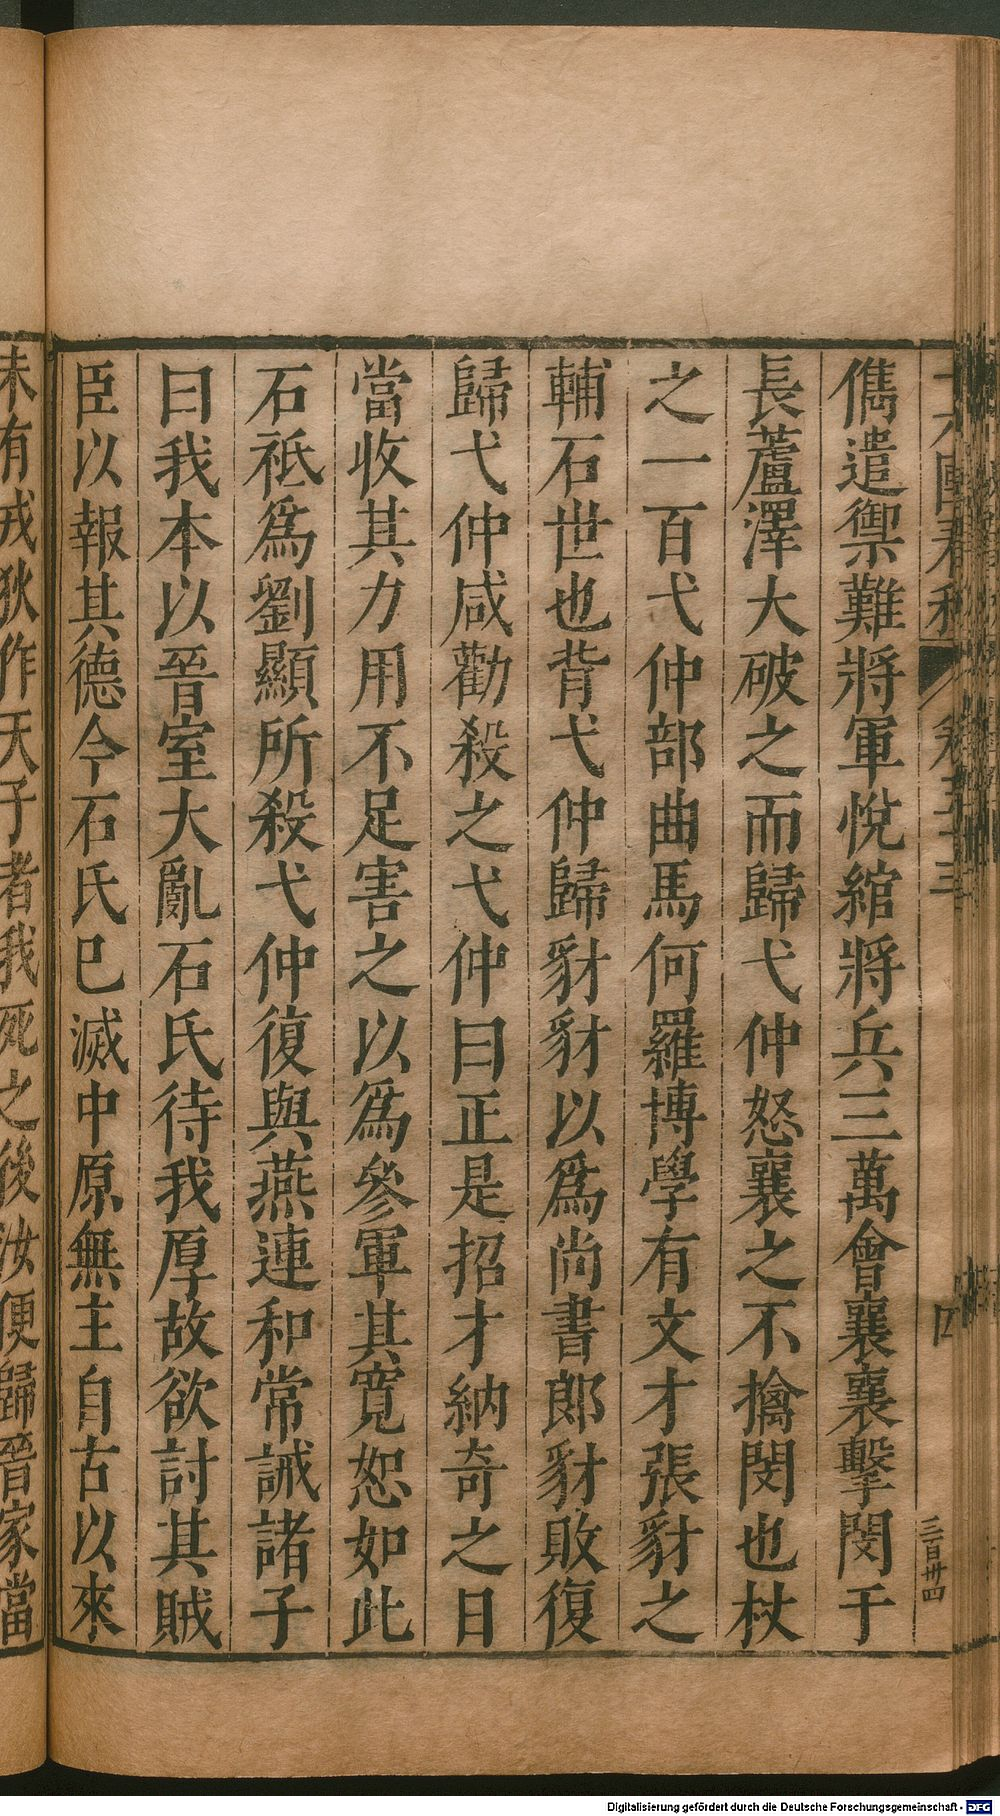 十六國春秋 卷五十三 四 三百卅四
儁遣禦難將軍悅綰將兵三萬會襄襄擊閔于
長蘆澤大破之而歸弋仲怒襄之不擒閔也杖
之一百弋仲部曲馬何羅博學有文才張豺之
輔石世也背弋仲歸豺豺以爲尚書郎豺敗復
歸弋仲咸勸殺之弋仲曰正是招才納奇之日
當收其力用不足害之以爲參軍其寬恕如此
石祗爲劉顯所殺弋仲復與燕連和常誡諸子
曰我本以晉室大亂石氏待我厚故欲討其賊
臣以報其德今石氏巳滅中原無主自古以來
未有戎狄作天子者我死之後汝便歸晉家當
Digitalisierung gefördert durch die Deutsche Forschungsgemeinschaft - DFG